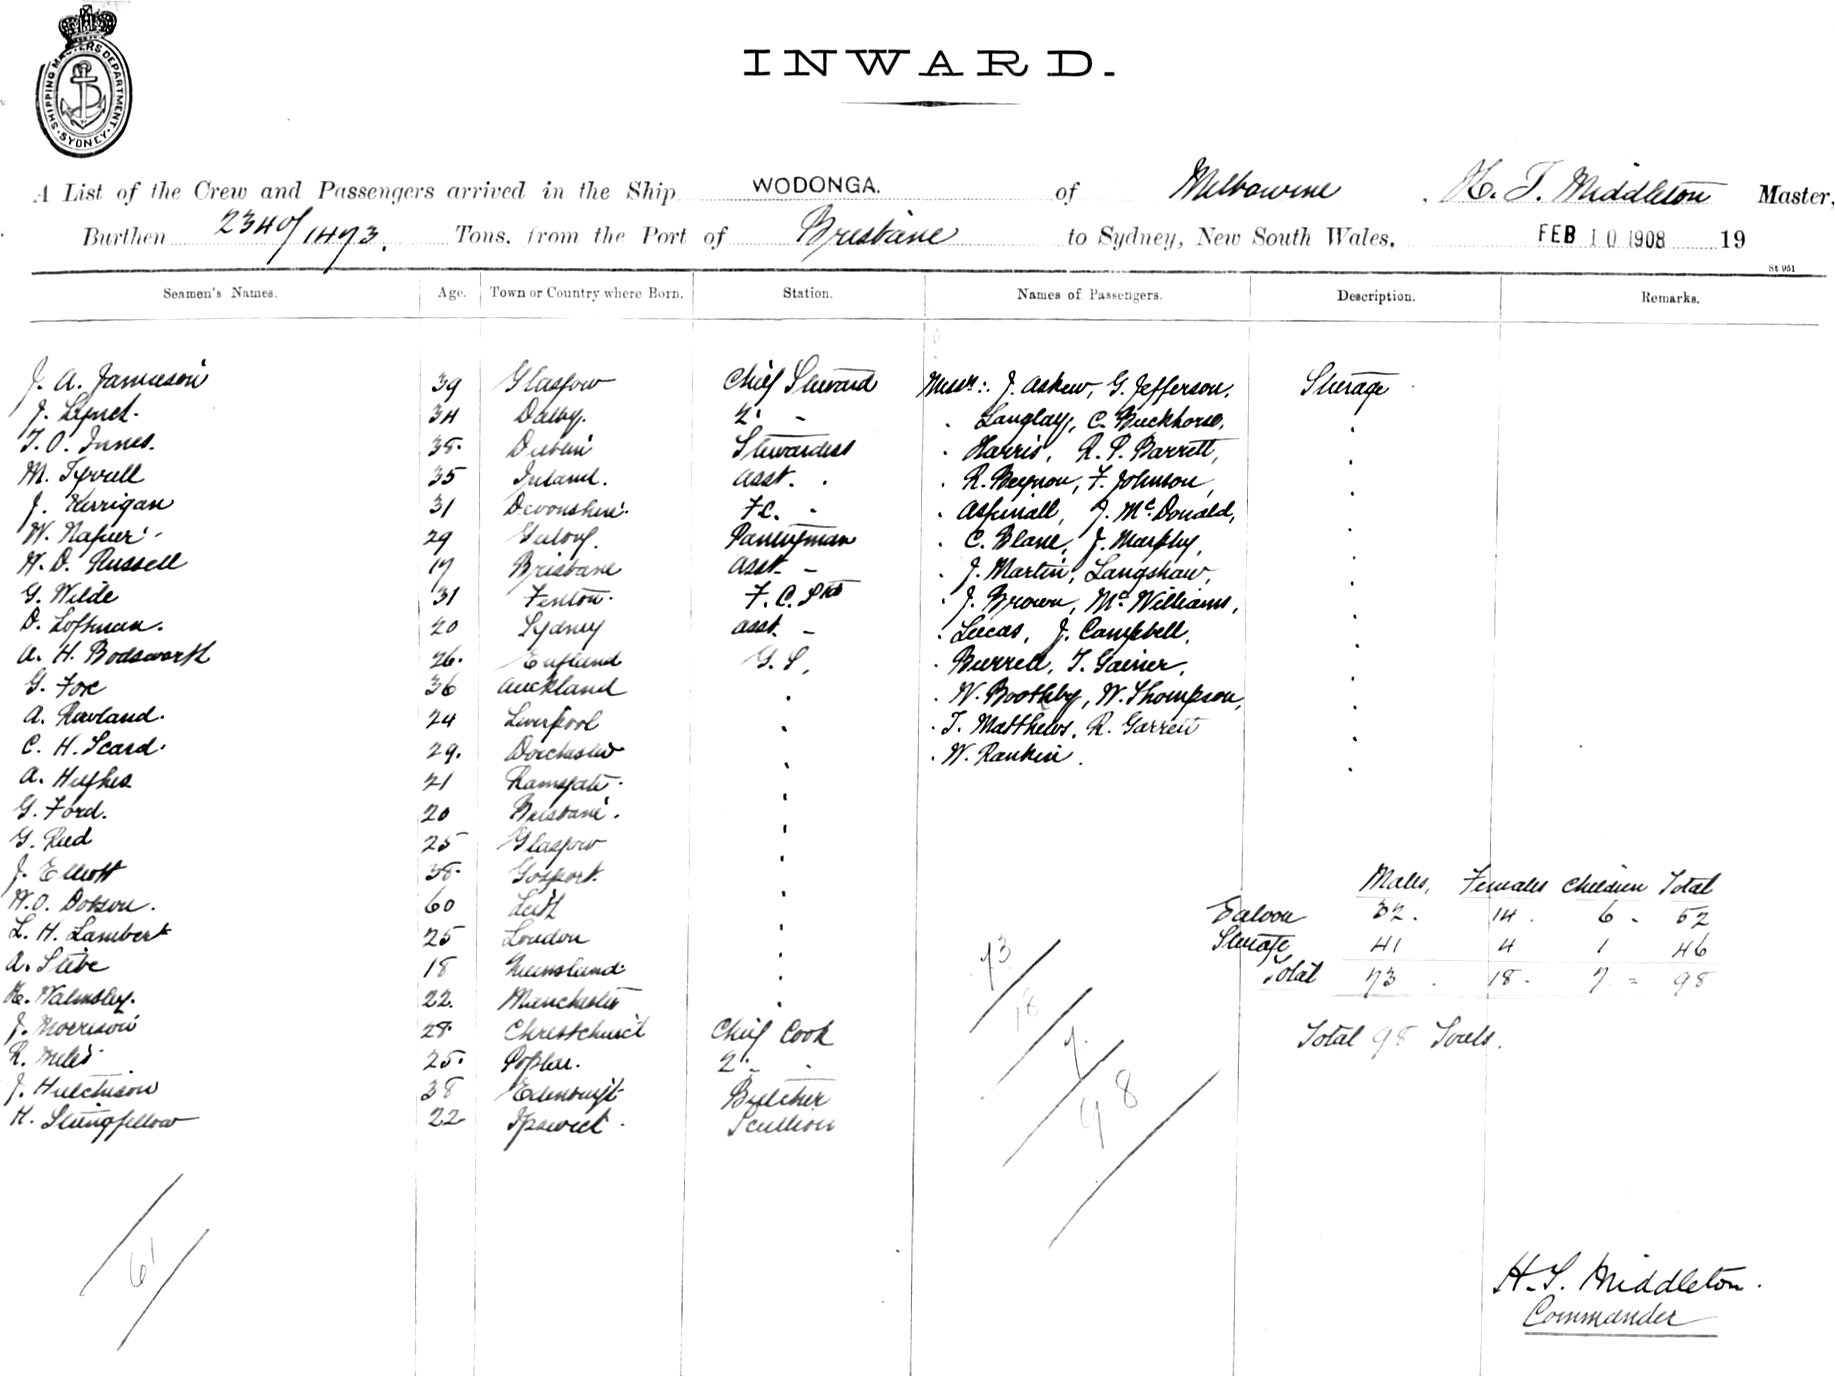 SHIPPING MASTERS DEPARTMENT · SYDNEY ·
INWARD.
A List of the Crew and Passengers arrived in the Ship WODONGA. of Melbourne H. T. Middleton Master,
Burthen 2340/1473. Tons, from the Port of Brisbane to Sydney, New South Wales, FEB 10 1908 19
St 951
Seamen's Names. Age. Town or Country where Born. Station. Names of Passengers. Description. Remarks.
J. A. Jamieson 39 Glasgow Chief Steward Messrs: J. Askew, G. Jefferson, Steerage
J. Lynch. 34 Dalby. 2 - Langlay, C. Buckhorse,
T. O. Innes. 38. Dublin Stewardess Harris, R. P. Barrett,
M. Tyrrell 35 Ireland. Asst. R. Beynon, F. Johnson,
J. Kerrigan 31 Devonshire. F.C. Aspinall, J. McDonald,
W. Napier 29 Pantryman C. Blane, J. Murphy,
H. D. Russell 17 Brisbane Asst. - J. Martin, Langshaw,
G. Wilde 31 Fenton. F. C. J. Brown, McWilliams,
D. Loffman. 20 Sydney Asst. - Lucas, J. Campbell,
A. H. Bodsworth 26. England G. S. Burrell, T. Gainer,
G. Fox 36 Auckland W. Boothby, W. Thompson,
A. Ravland. 24 Liverpool T. Matthews, R. Garrett
C. H. Scard. 29. Dorchester W. Rankin.
A. Hughes 21 Ramsgate.
G. Ford. 20 Brisbane.
G. Reed 25 Glasgow
J. Elliott 38. Gosport.
W. O. Dobson. 60 Leith
L. H. Lambert 25 London
A. Stibe 18 Queensland.
H. Walmsley. 22. Manchester
J. Morrison 28. Christchurch Chief Cook
R. Miles 25. Poplar. 2
J. Hutchison 38 Edinburgh Butcher
H. Stringfellow 22 Ipswich. Scullion
Males, Females Children Total
Saloon 32. 14. 6 - 52
Steerage 41 4 1 46
Total 73. 18. 7 = 98
Total 98 Souls.
73
18
7.
98
61
H. T. Middleton.
Commander